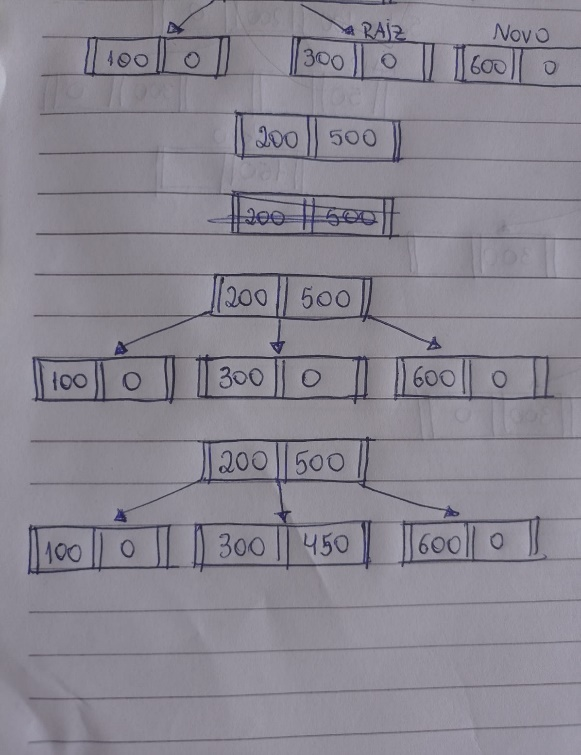 RAIZ NOVO
100 0 300 0 600 0
200 500
200 500
200 500
100 0 300 0 600 0
200 500
100 0 300 450 600 0